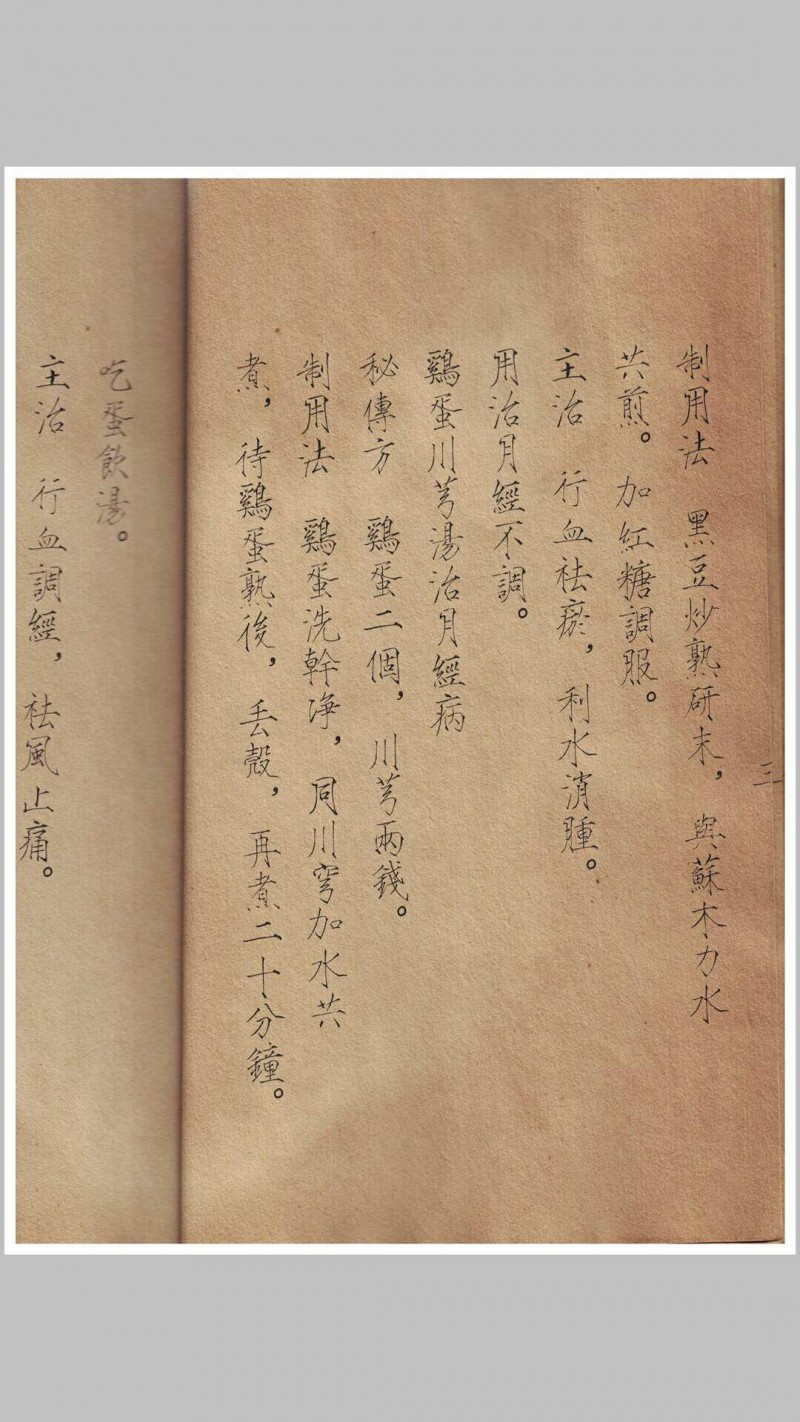 三
制用法 黑豆炒熟研末，與蘇木力水
共煎。加紅糖調服。
主治 行血祛瘀，利水消腫。
用治月經不調。
鷄蛋川芎湯治月經病
秘傳方 鷄蛋二個，川芎兩錢。
制用法 鷄蛋洗幹净，同川穹加水共
煮，待鷄蛋熟後，丢殼，再煮二十分鐘。
吃蛋飲湯。
主治 行血調經，祛風止痛。